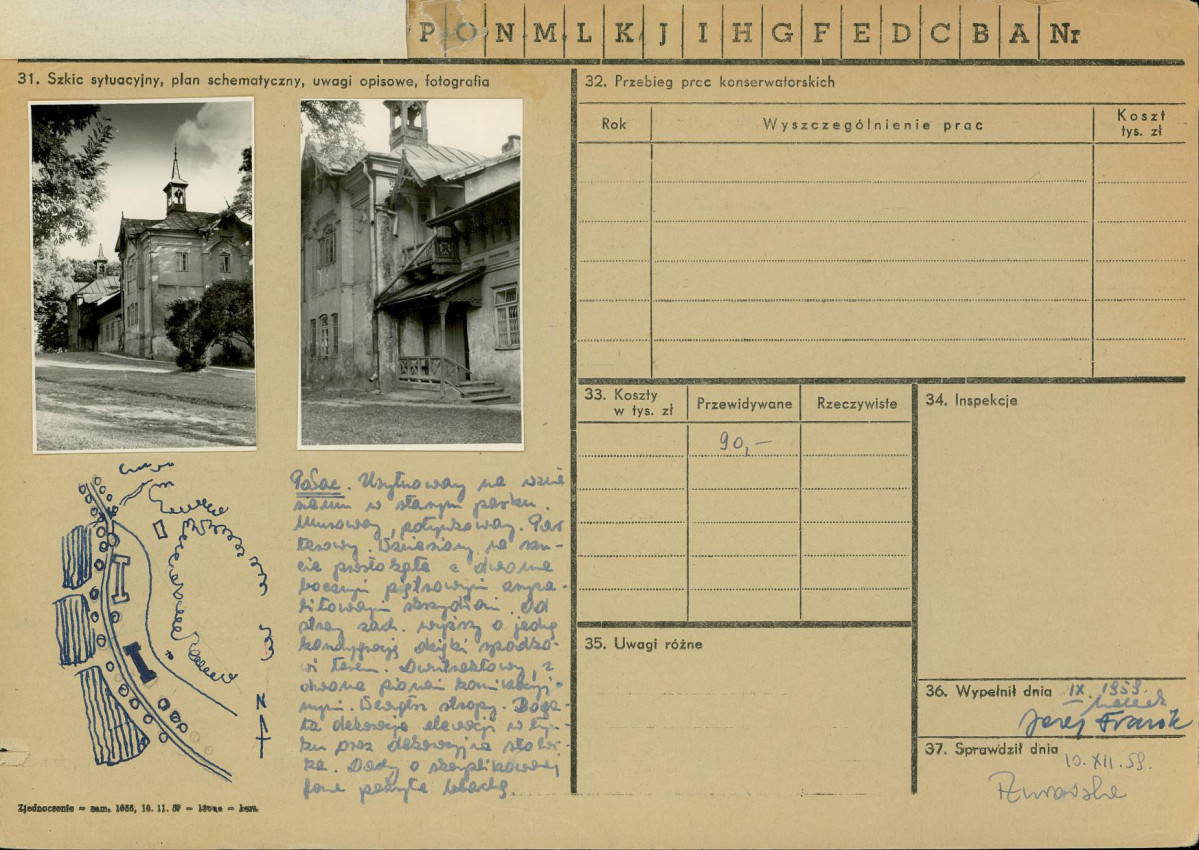 P O N M L K J I H G F E D C B A Nr
31. Szkic sytuacyjny, plan schematyczny, uwagi opisowe, fotografia
Pałac. Usytuowany na wznie
sieniu w starym parku.
Murowany, potynkowany. Par
terowy. Wzniesiony na rzu-
cie prostokąta z dwoma
bocznymi piętrowymi
skrzydłami. Od
strony zach. wyższy o jedną
kondygnację dzięki spadko-
wi teren. Dwutraktowy, z
dwoma pionami komunikacyj-
nymi. Wewnątrz stropy. Boga-
ta dekoracja elewacji w tyn-
ku oraz dekoracyjna stolar-
ka. Dachy o skomplikowanej
formie pokryte blachą.
N
Zjednoczenie — zam. 1655, 16. 11. 57 — kart.
32. Przebieg prac konserwatorskich
Rok
Wyszczególnienie prac
Koszt
tys. zł
33. Koszty
w tys. zł
Przewidywane
Rzeczywiste
90,-
34. Inspekcje
35. Uwagi różne
36. Wypełnił dnia IX. 1959.
37. Sprawdził dnia
10. XII. 59.